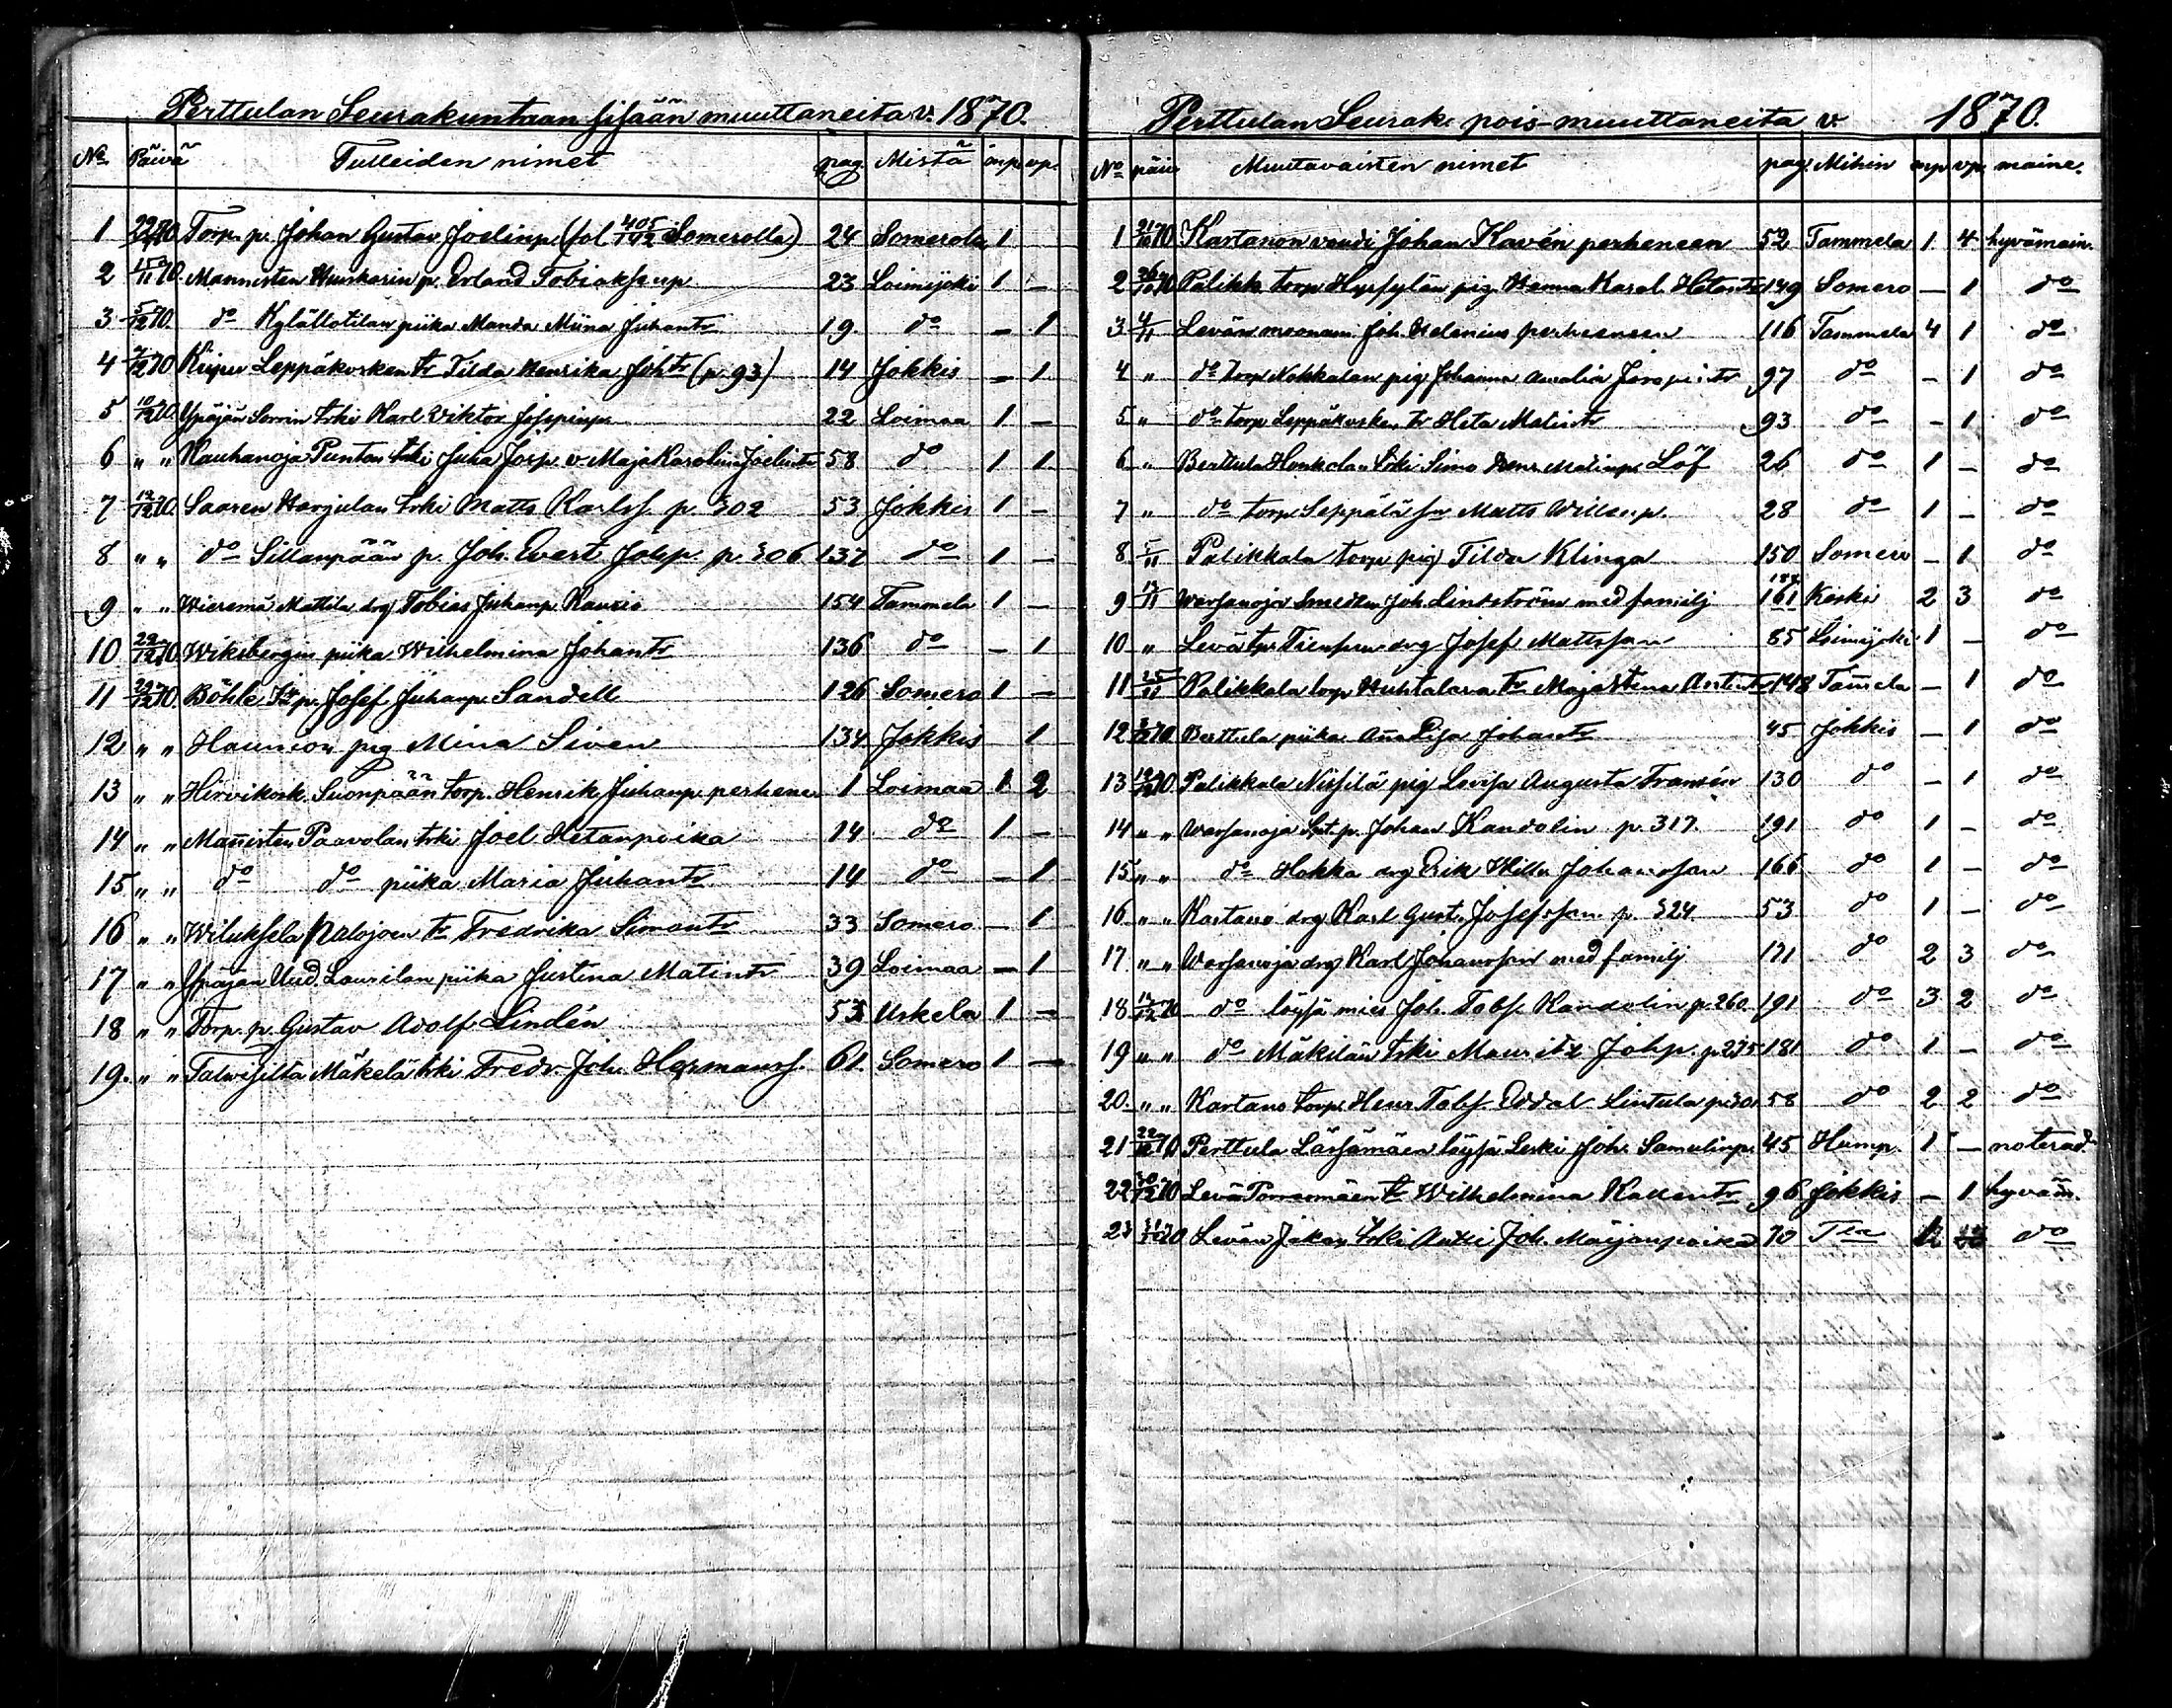 Perttulan Seurakuntaan sisään muuttaneita v. 1870.
No Päivä Tulleiden nimet pag. Mistä mp. vp.
1 Torp. p. Johan Gustav Joelinp. (fol 405/142 Somerolla) 24 Somerola 1
2 15/11 70. Mannisten p. Erland Tobiaksenp 23 Loimijoki 1 —
3 5/12 70. do Kylällotilan piika Manda Miina Juhantr 19. do — 1
4 7/12 70 Leppäkosken tr Tilda Henrika Johtr (p. 93) 14 Jokkis — 1
5 10/12 70. Ypäjän Sorrin trki Karl Viktor 22 Loimaa 1 —
6 " " Kauhanoja Puntun trki Juha Josp. v. Maja Karoliina Joelintr 58 do 1 1
7 12/12 70. Saaren Harjulan trki Matts Karlss. p. 302 53 Jokkis 1 —
8 " " do Sillanpään p. Joh. Evert Johp. p. 306 137 do 1 —
9 " " Wieremä Mattila drg Tobias Juhanp. 154 Tammela 1 —
10 22/12 70 Wiksbergin piika Wilhelmina Johantr 136 do — 1
11 29/12 70 Böhle Josef Juhanp Sandell 126 Somero 1 —
12 " " Haunion pig Mina Siven 134 Jokkis 1
13 " " Hirvikosk. Suonpään torp. Henrik Juhanp. perhene 1 Loimaa 1 2
14 " " Mañisten Paavolan trki Joel Hetanpoika 14 do 1 —
15 " " do do piika Maria Juhantr 14 do — 1
16 " " Wiluksela Palojoen tr Fredrika Simontr 33 Somero — 1
17 " " Ypäjän Uud. Laurilan piika Justina Matintr 39 Loimaa — 1
18 " " Torp. p. Gustav Adolf Lindén 53 Uskela 1 —
19. " " Talwisilta Mäkelä trki Fredr. Joh. Hermanss. 61. Somero 1 —
Perttulan Seurak. pois-muuttaneita v. 1870.
No päiv Muuttavaisten nimet pag. Mihin mp. vp. maine.
1 21/10 70 Kartanon voudi Johan Kavén perheneen 52 Tammela 1 4 hyvämain.
2 26/10 70 Palikk. torp. pig. Hanna Karol. Hetantr 149 Somero — 1 do
3 4/11 Levän moonam. Joh. Helenius perheeneen 116 Tammela 4 1 do
4 " do torp Nokkalan pig Johanna Amalia 97 do — 1 do
5 " do torp Leppäkosken tr Heta Matintr 93 do — 1 do
6 " Berttula Honkolan trki Simo Henr. Matinp. Löf 26 do 1 — do
7 " do torp. Seppälä Matts Willenp. 28 do 1 — do
8 5/11 Palikkala torp pig Tilda Klinga 150 Somero — 1 do
9 Warsanoja Smeden Joh. Lindström med familj 161 Koski 2 3 do
10 " Levä drg Josef Mattsson 85 Loimijoki 1 — do
11 25/11 Palikkala torp Huhtalasa tr Majastina Antintr 148 Tam̃ela — 1 do
12 Berttula piika Añalisa Johantr 45 Jokkis — 1 do
13 Palikkala Nissilä pig Lovisa Augusta Franzén 130 do — 1 do
14 " " Warsanoja p. Johan Kandolin p. 317. 191 do 1 — do
15 " " do Hokka drg Erik Willh Johansson 166 do 1 — do
16 " " Kartano drg Karl Gust. Josefsson p. 324 53 do 1 — do
17 " " Warsanoja drg Karl Johansson med familj 171 do 2 3 do
18 14/12 70 do löysä mies Joh. Tobs. Kandolin p. 260. 191 do 3 2 do
19 " " do Mäkilän trki Mauritz Johp. p. 275 181 do 1 — do
20. " " Kartano torp. Henr. Lintula p. 301 58 do 2 2 do
21 22/12 70 Perttula Lassämäen löysä Leski Joh. Samulinp. 45 Hump. 1 — noterad
22 30/12 70 Levä Tommmäen tr Wilhelmina Kallentr 96 Jokkis — 1 hyväm.
23 31/12 70 Levän trki Antti Joh. Maijanpoika 70 Tla do